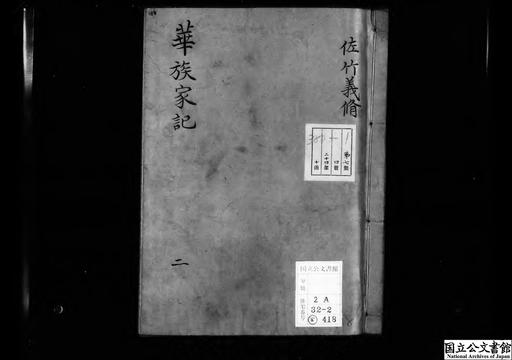 佐竹義脩
華族家記
二
国立公文書館
2 A
32-2
418
国立公文書館
National Archives of Japan